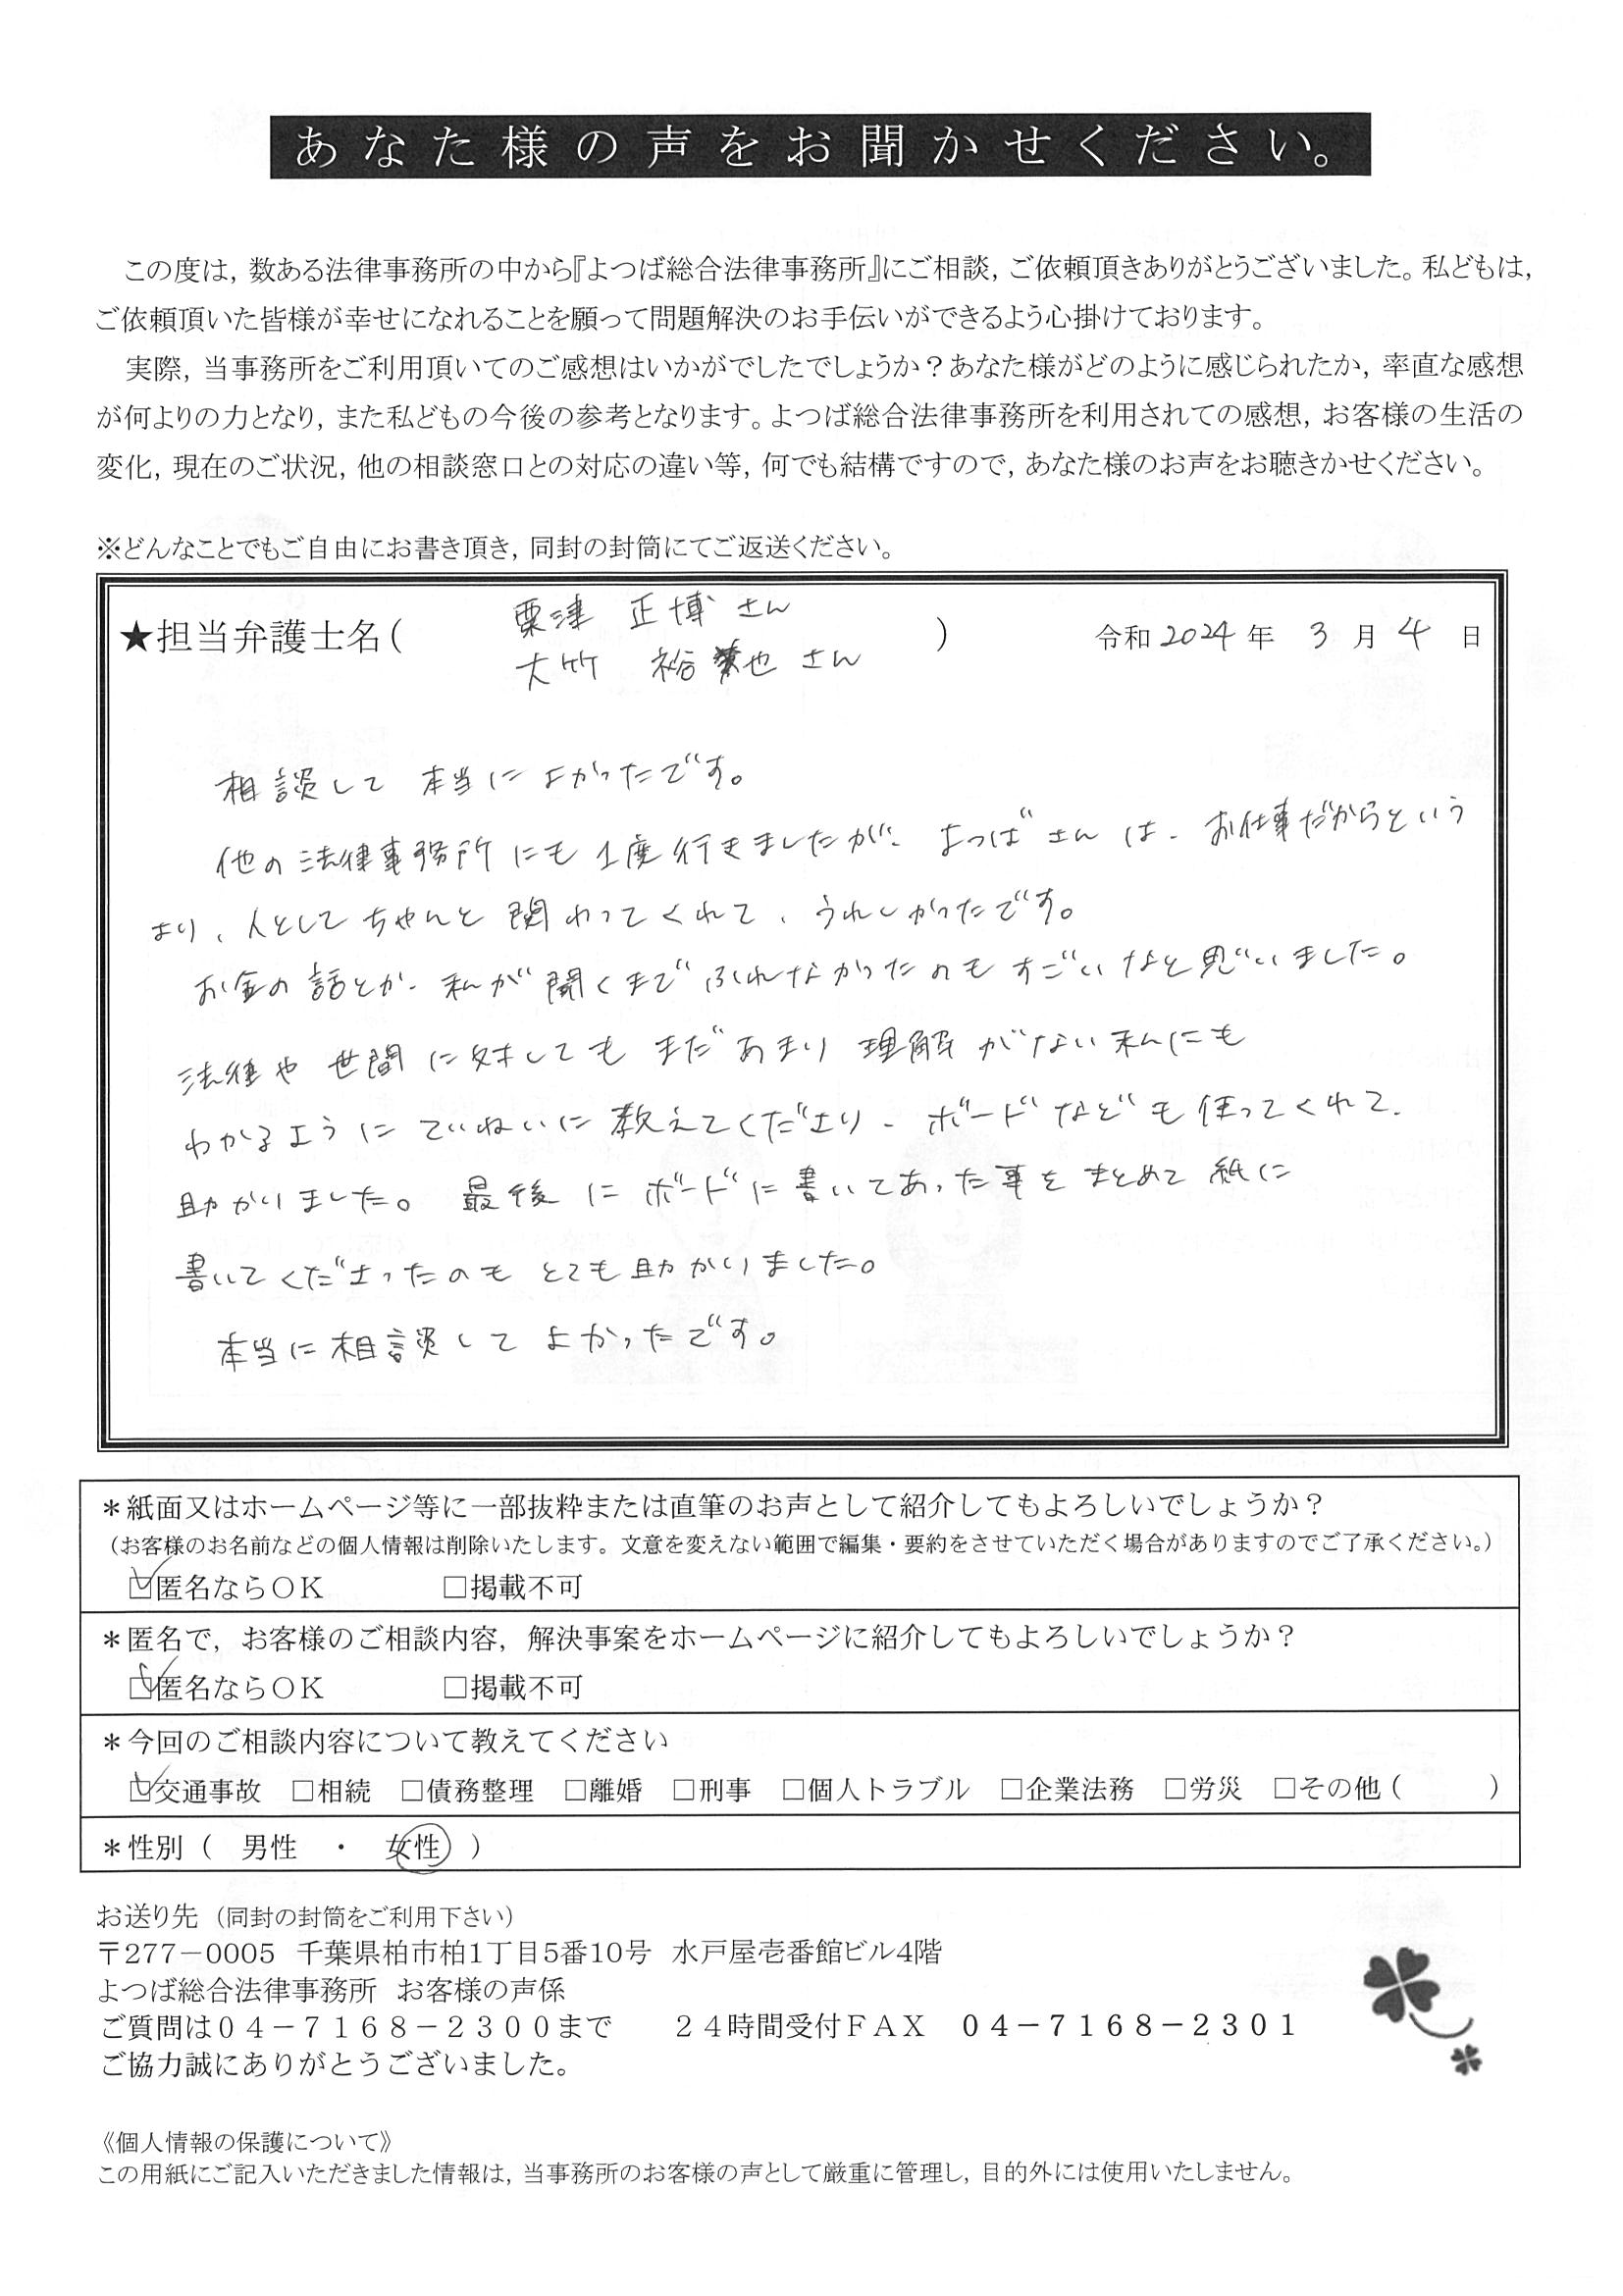 あなた様の声をお聞かせください。
この度は，数ある法律事務所の中から『よつば総合法律事務所』にご相談，ご依頼頂きありがとうございました。私どもは，
ご依頼頂いた皆様が幸せになれることを願って問題解決のお手伝いができるよう心掛けております。
実際，当事務所をご利用頂いてのご感想はいかがでしたでしょうか？あなた様がどのように感じられたか，率直な感想
が何よりの力となり，また私どもの今後の参考となります。よつば総合法律事務所を利用されての感想，お客様の生活の
変化，現在のご状況，他の相談窓口との対応の違い等，何でも結構ですので，あなた様のお声をお聴きかせください。
※どんなことでもご自由にお書き頂き，同封の封筒にてご返送ください。
粟津 正博さん
★担当弁護士名（ ） 令和2024年 3月4日
大竹 裕也さん
相談して 本当に よかったです。
他の法律事務所にも1度行きましたが、よつばさんは、お仕事だからという
より、人としてちゃんと関わってくれて、うれしかったです。
お金の話とか、私が聞くまでふれなかったのもすごいなと思いました。
法律や世間に対してもまだあまり理解がない私にも
わかるようにていねいに教えてくださり、ボードなども使ってくれて、
助かりました。最後にボードに書いてあった事をまとめて紙に
書いてくださったのもとても助かりました。
本当に相談してよかったです。
＊紙面又はホームページ等に一部抜粋または直筆のお声として紹介してもよろしいでしょうか？
（お客様のお名前などの個人情報は削除いたします。文意を変えない範囲で編集・要約をさせていただく場合がありますのでご了承ください。）
☑匿名ならＯＫ □掲載不可
＊匿名で，お客様のご相談内容，解決事案をホームページに紹介してもよろしいでしょうか？
☑匿名ならＯＫ □掲載不可
＊今回のご相談内容について教えてください
☑交通事故 □相続 □債務整理 □離婚 □刑事 □個人トラブル □企業法務 □労災 □その他（ ）
＊性別（ 男性 ・ 女性 ）
お送り先（同封の封筒をご利用下さい）
〒277－0005 千葉県柏市柏1丁目5番10号 水戸屋壱番館ビル4階
よつば総合法律事務所 お客様の声係
ご質問は０４－７１６８－２３００まで ２４時間受付ＦＡＸ ０４－７１６８－２３０１
ご協力誠にありがとうございました。
《個人情報の保護について》
この用紙にご記入いただきました情報は，当事務所のお客様の声として厳重に管理し，目的外には使用いたしません。